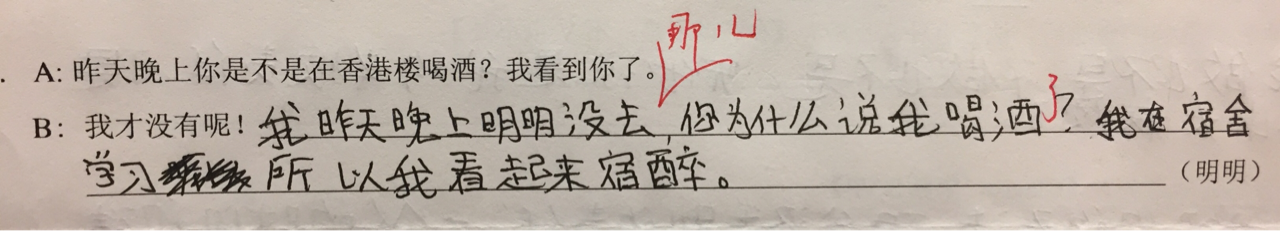 那儿
. A: 昨天晚上你是不是在香港楼喝酒？我看到你了。
B: 我才没有呢！我昨天晚上明明没去,你为什么说我喝酒了？我在宿舍
学习 所以我看起来宿醉。（明明）